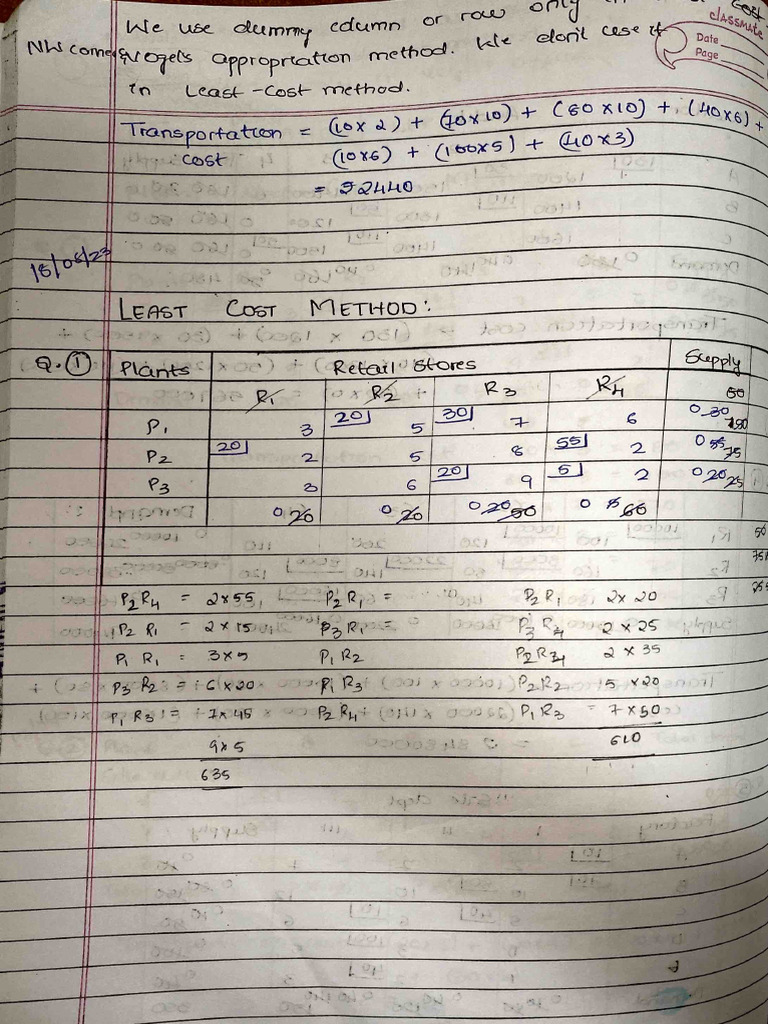 We use dummy column or row only in
NW corner, Vogel's appropriation method. We don't use it
in Least-Cost method.
classmate
Date
Page
Transportation = (10x2) + (40x10) + (60x10) + (40x6) +
cost (10x6) + (100x5) + (40x3)
= ₹2440
18/08/23
LEAST COST METHOD:
Q.① Plants Retail Stores Supply
R1 R2 R3 R4 50
P1 3 20 5 30 7 6 0 30
P2 20 2 5 8 55 2 0 55 75
P3 3 6 20 9 5 2 0 20 25
0 20 0 20 0 20 50 0 5 60
P2R4 = 2x55 P2R1 = P2R1 2x20
P2R1 = 2x15 P3R1 = P3R4 2x25
P1R1 = 3x5 P1R2 P2R4 2x35
P3R2 = 6x20 P1R3 P2R2 5x20
P1R3 = 7x45 P2R4 P1R3 = 7x50
9x5 610
635